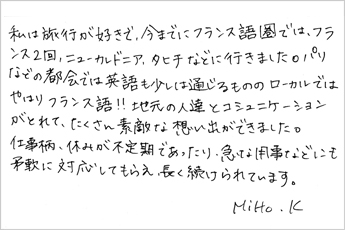 私は旅行が好きで、今までにフランス語圏では、フラ
ンス2回、ニューカルドニア、タヒチなどに行きました。パリ
などの都会では英語も少しは通じるもののローカルでは
やはりフランス語!!地元の人達とコミュニケーション
がとれて、たくさん素敵な想い出ができました。
仕事柄、休みが不定期であったり、急な用事などにも
柔軟に対応してもらえ、長く続けられています。
MiHo.K